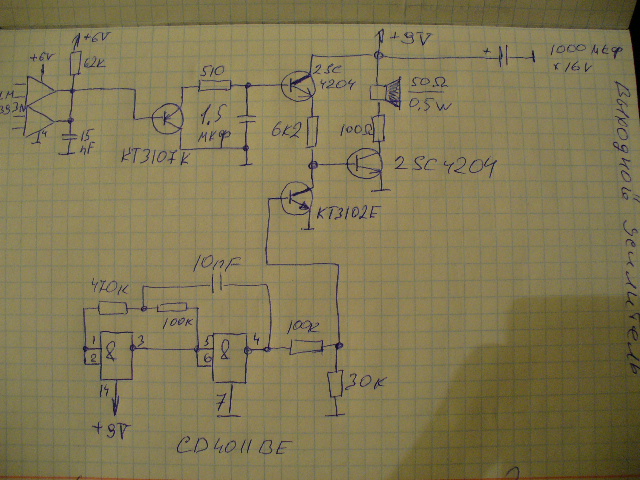 +6V
+9V
1000 мкф
x 16V
+6V
62K
510
2SC
4204
50Ω
0,5W
1.5
мкф
6K2
100Ω
4
15
nF
KT3107K
2SC4204
KT3102E
10nF
470K
100K
100K
1
2
&
3
5
6
&
4
30K
14
7
+9V
CD4011BE
Выходной усилитель